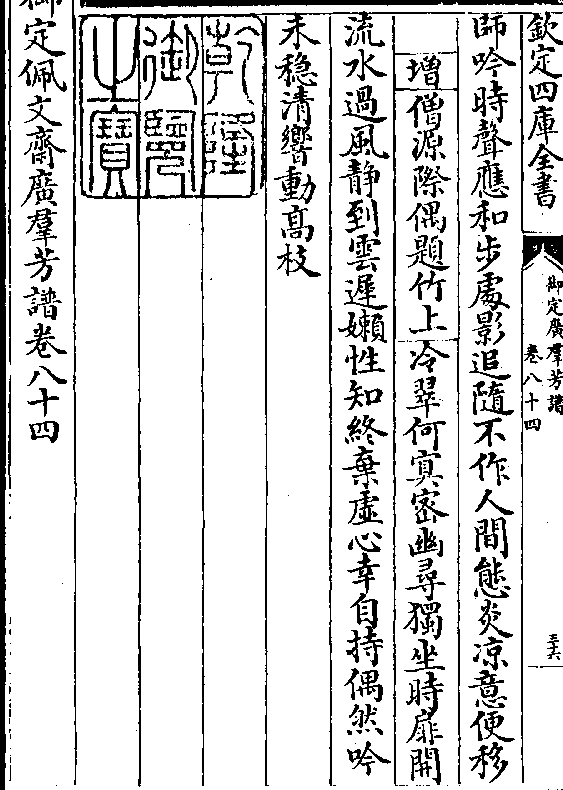 欽定四庫全書
御定廣羣芳譜
卷八十四
三六
師吟時聲應和步處影追隨不作人間態炎凉意便移
增僧源際偶題竹上冷翠何寞密幽尋獨坐時扉開
流水過風靜到雲遲嬾性知終棄虛心幸自持偶然吟
未穏清響動髙枝
乾隆御覽之寶
御定佩文齋廣羣芳譜卷八十四